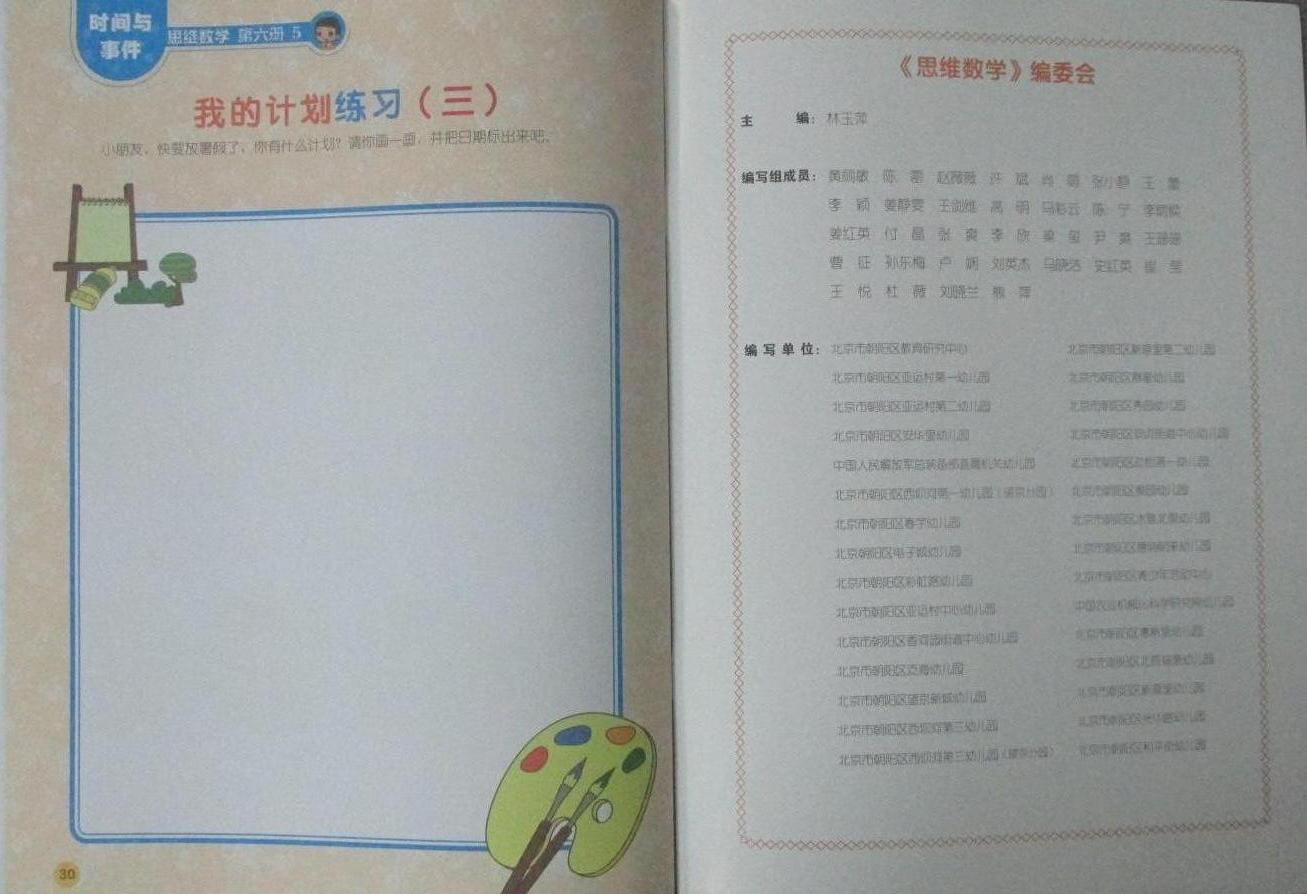 时间与
事件
思维数学 第六册 5
我的计划练习（三）
小朋友，快要放暑假了，你有什么计划？请你画一画，并把日期标出来吧。
30
《思维数学》编委会
主 编： 林玉萍
编写组成员： 黄丽敏 陈 赵薇薇 许 斌 肖 张小静 王
李 颖 姜静雯 王剑维 高 明 马彩云 陈 宁
姜红英 付 晶 张 爽 李 欣 梁 玺 尹 王珊珊
曹 征 孙东梅 卢 娴 刘英杰 马晓洁 史红英 崔 莹
王 悦 杜 薇 刘晓兰 熊 萍
编写单位： 北京市朝阳区教育研究中心
北京市朝阳区亚运村第一幼儿园
北京市朝阳区亚运村第二幼儿园
北京市朝阳区安华里幼儿园
中国人民解放军总装备部直属机关幼儿园
北京市朝阳区西坝河第一幼儿园（望京分园）
北京市朝阳区春宇幼儿园
北京朝阳区电子城幼儿园
北京市朝阳区彩虹路幼儿园
北京市朝阳区亚运村中心幼儿园
北京市朝阳区香河园街道中心幼儿园
北京市朝阳区迈海幼儿园
北京市朝阳区望京新城幼儿园
北京市朝阳区西坝河第三幼儿园
北京市朝阳区西坝河第三幼儿园（望京分园）
北京市朝阳区新源里第二幼儿园
北京市朝阳区群星幼儿园
北京市朝阳区秀园幼儿园
北京市朝阳区街道中心幼儿园
北京市朝阳区第一幼儿园
北京市朝阳区幼儿园
北京市朝阳区水碓北里幼儿园
北京市朝阳区幼儿园
北京市朝阳区青少年活动中心
中国农业机械化科学研究院幼儿园
北京市朝阳区惠新里幼儿园
北京市朝阳区幼儿园
北京市朝阳区幼儿园
北京市朝阳区光华路幼儿园
北京市朝阳区和平街幼儿园